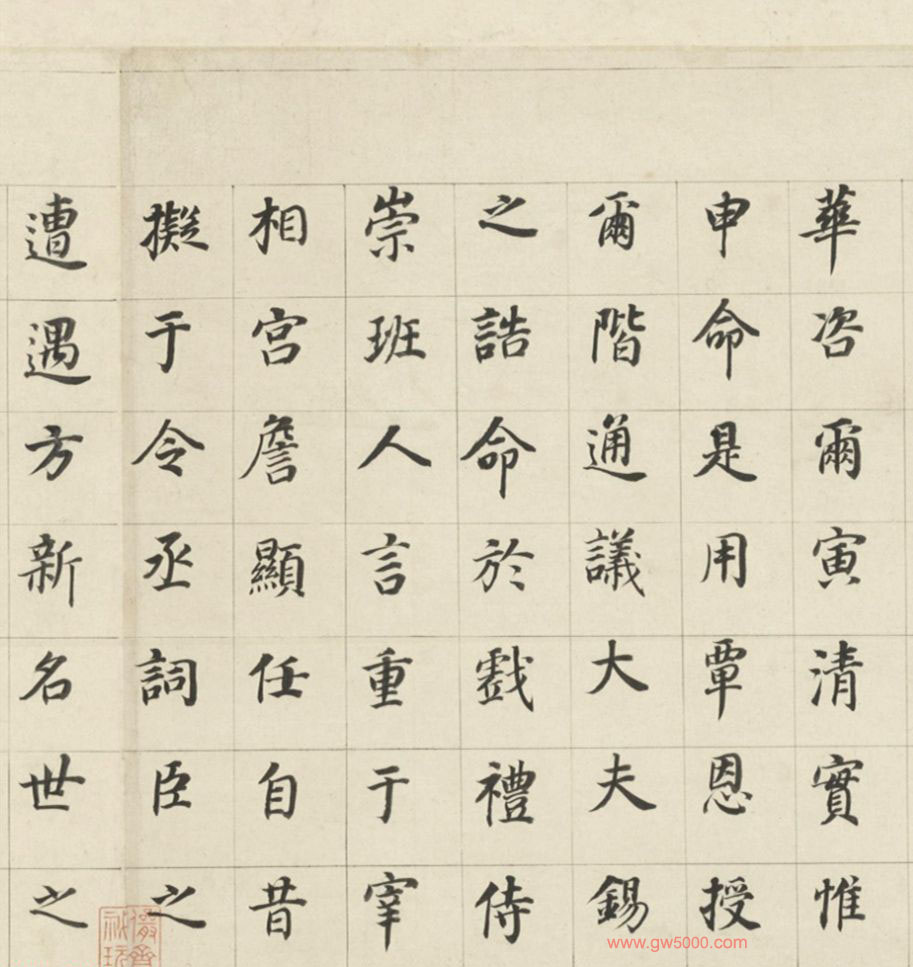 華咨爾寅清實惟
申命是用覃恩授
爾階通議大夫錫
之誥命於戲禮侍
崇班人言重于宰
相宮詹顯任自昔
擬于令丞詞臣之
遭遇方新名世之
www.gw5000.com